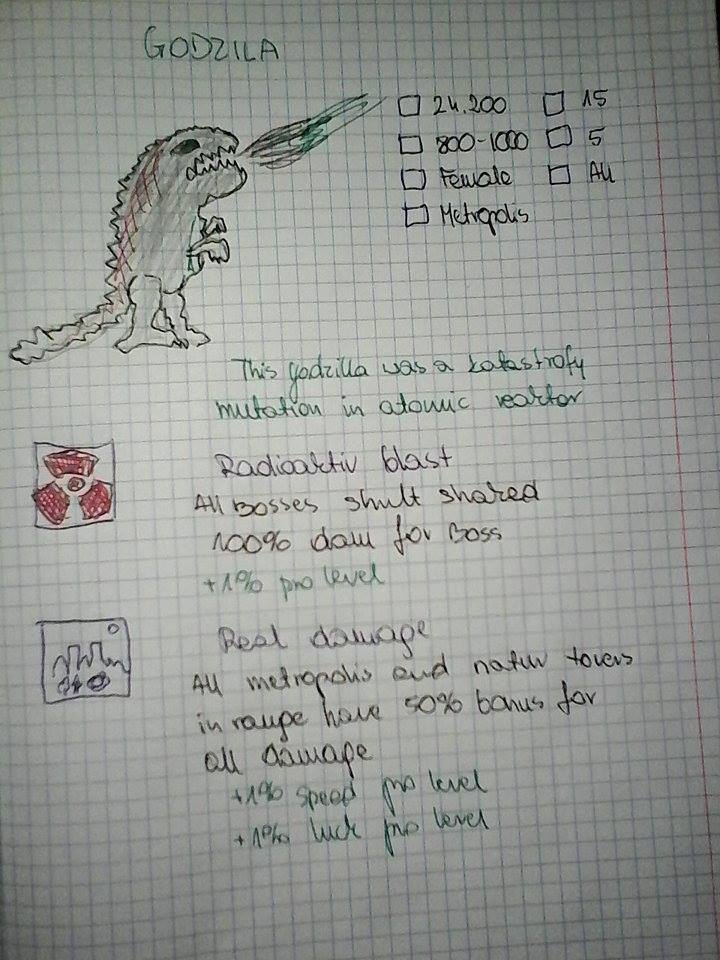 GODZILA
24.200
15
800-1000
5
Female
All
Metropolis
This godzilla was a katastrofy
mutation in atomic reactor
Radioaktiv blast
All Bosses shult shared
100% dam for Boss
+1% pro level
Real damage
All metropolis and natur towers
in range have 50% bonus for
all damage
+1% speed pro level
+1% luck pro level